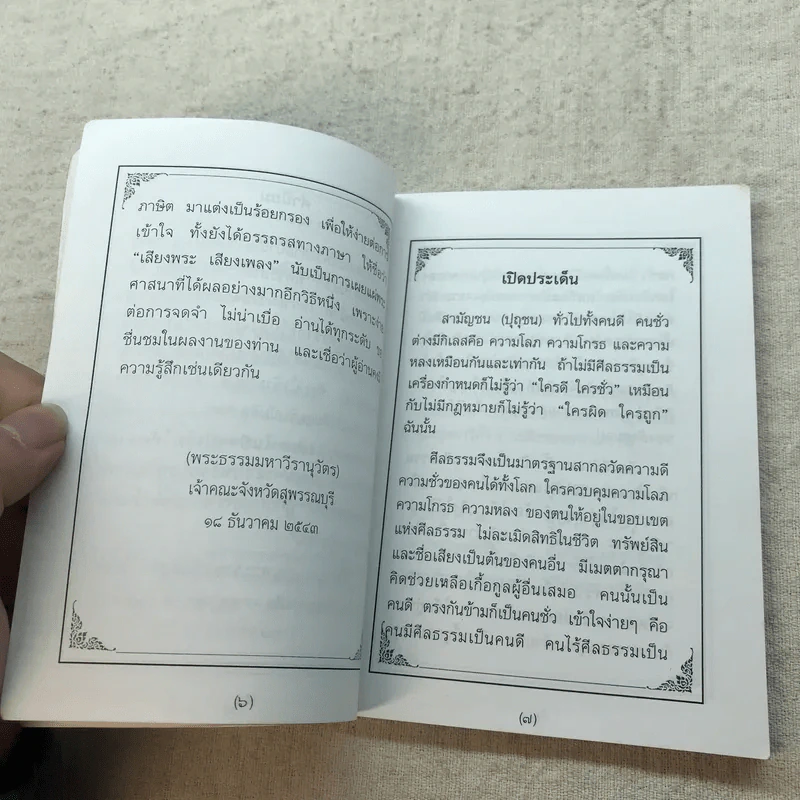 ภาษิต มาแต่งเป็นร้อยกรอง เพื่อให้ง่ายต่อการ
เข้าใจ ทั้งยังได้อรรถรสทางภาษา ให้ชื่อว่า
“เสียงพระ เสียงเพลง” นับเป็นการเผยแผ่พระ
ศาสนาที่ได้ผลอย่างมากอีกวิธีหนึ่ง เพราะง่าย
ต่อการจดจำ ไม่น่าเบื่อ อ่านได้ทุกระดับ
ชื่นชมในผลงานของท่าน และเชื่อว่าผู้อ่าน
ความรู้สึกเช่นเดียวกัน
(พระธรรมมหาวีรานุวัตร)
เจ้าคณะจังหวัดสุพรรณบุรี
๑๘ ธันวาคม ๒๕๔๓
(๖)
เปิดประเด็น
สามัญชน (ปุถุชน) ทั่วไปทั้งคนดี คนชั่ว
ต่างมีกิเลสคือ ความโลภ ความโกรธ และความ
หลงเหมือนกันและเท่ากัน ถ้าไม่มีศีลธรรมเป็น
เครื่องกำหนดก็ไม่รู้ว่า “ใครดี ใครชั่ว” เหมือน
กับไม่มีกฎหมายก็ไม่รู้ว่า “ใครผิด ใครถูก”
ฉันนั้น
ศีลธรรมจึงเป็นมาตรฐานสากลวัดความดี
ความชั่วของคนได้ทั้งโลก ใครควบคุมความโลภ
ความโกรธ ความหลง ของตนให้อยู่ในขอบเขต
แห่งศีลธรรม ไม่ละเมิดสิทธิในชีวิต ทรัพย์สิน
และชื่อเสียงเป็นต้นของคนอื่น มีเมตตากรุณา
คิดช่วยเหลือเกื้อกูลผู้อื่นเสมอ คนนั้นเป็น
คนดี ตรงกันข้ามก็เป็นคนชั่ว เข้าใจง่ายๆ คือ
คนมีศีลธรรมเป็นคนดี คนไร้ศีลธรรมเป็น
(๗)